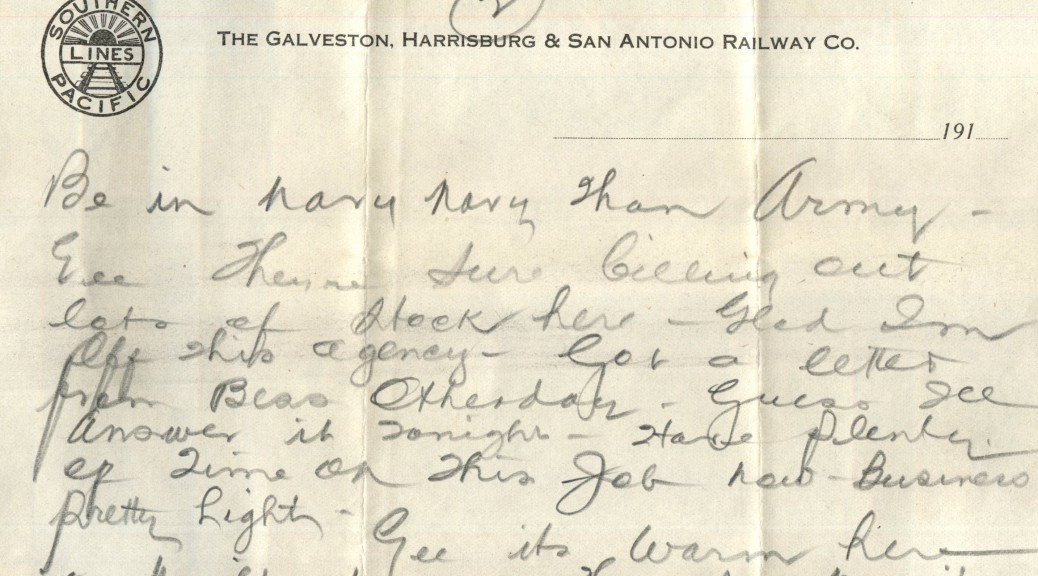 SOUTHERN
LINES
PACIFIC
2
THE GALVESTON, HARRISBURG & SAN ANTONIO RAILWAY CO.
191
Be in navy navy than Army -
Gee Theyre sure billing out
lots of stock here - Glad Im
Off this agency - Got a letter
from Bess Otherday - Guess Ill
Answer it Tonight - Have plenty
of Time on This Job now - Business
pretty Light - Gee its warm here